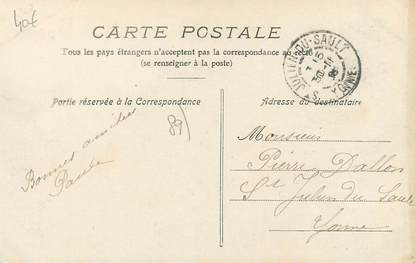 40€
CARTE POSTALE
Tous les pays étrangers n'acceptent pas la correspondance au
(se renseigner à la poste)
ST JULIEN-DU-SAULT
YONNE
Partie réservée à la Correspondance
Adresse du destinataire
89
Bonnes amitiés
Paule
Monsieur
Pierre Dallon
St Julien du Sault
Yonne